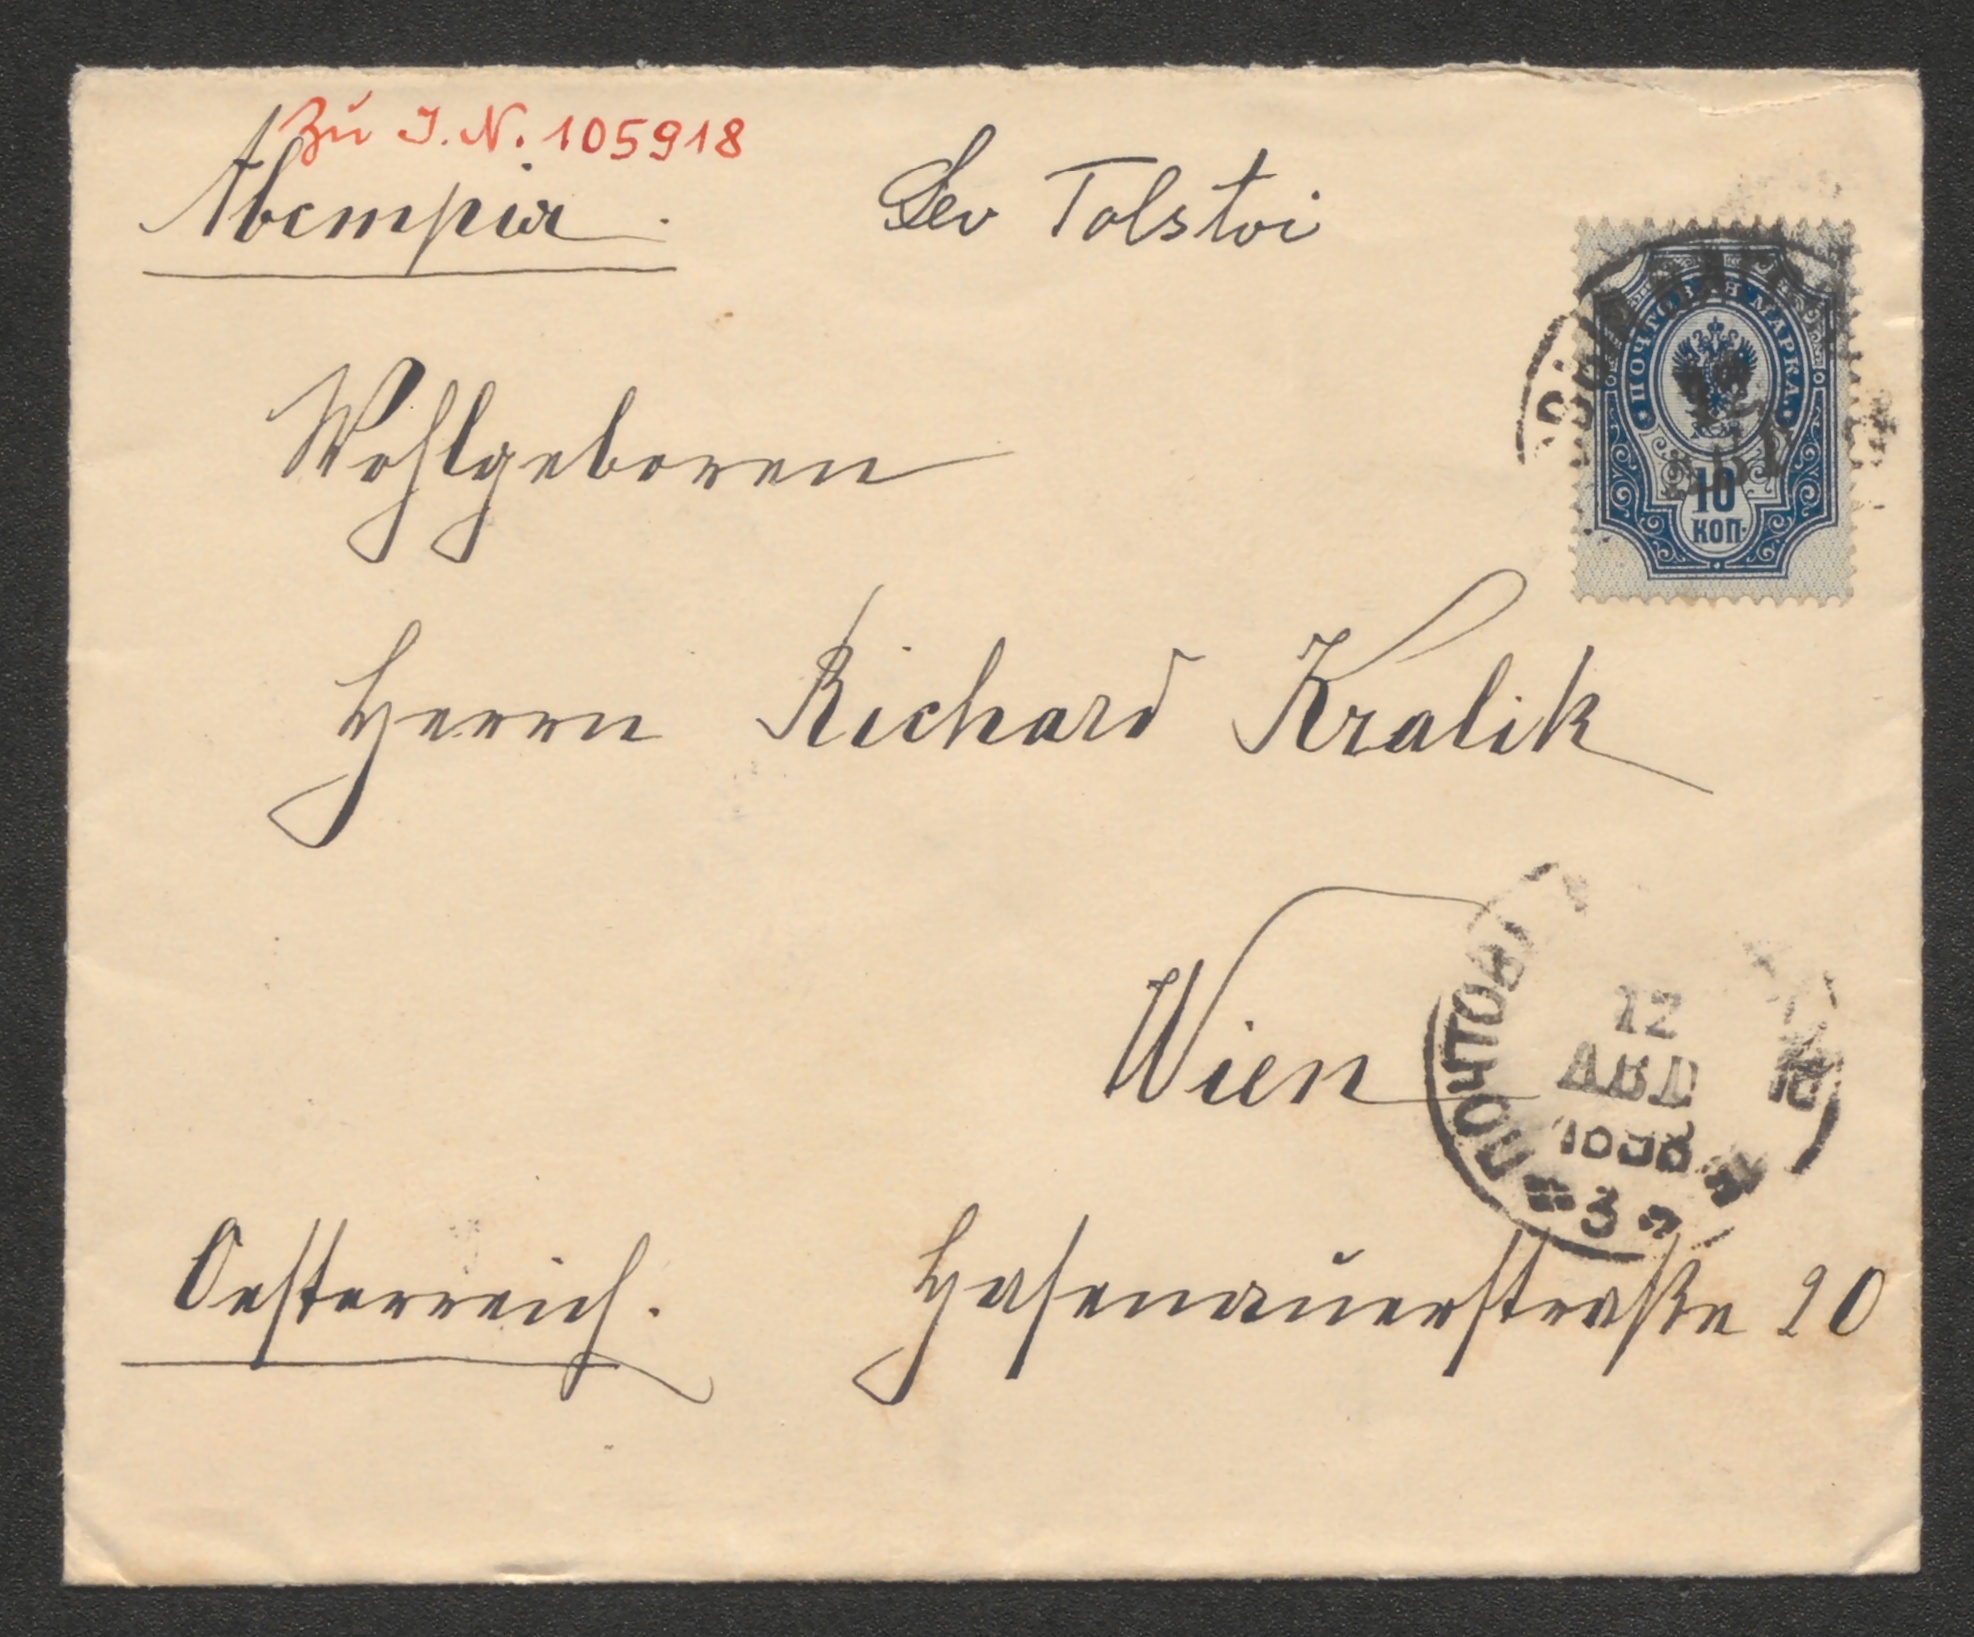 Zu I.N. 105918
Австрія.
Lev Tolstoi
ПОЧТОВАЯ МАРКА
10
КОП.
Wohlgeboren
Herrn Richard Kralik
Wien
12
АВГ
1898
3
Oesterreich.
Hasenauerstraße 20